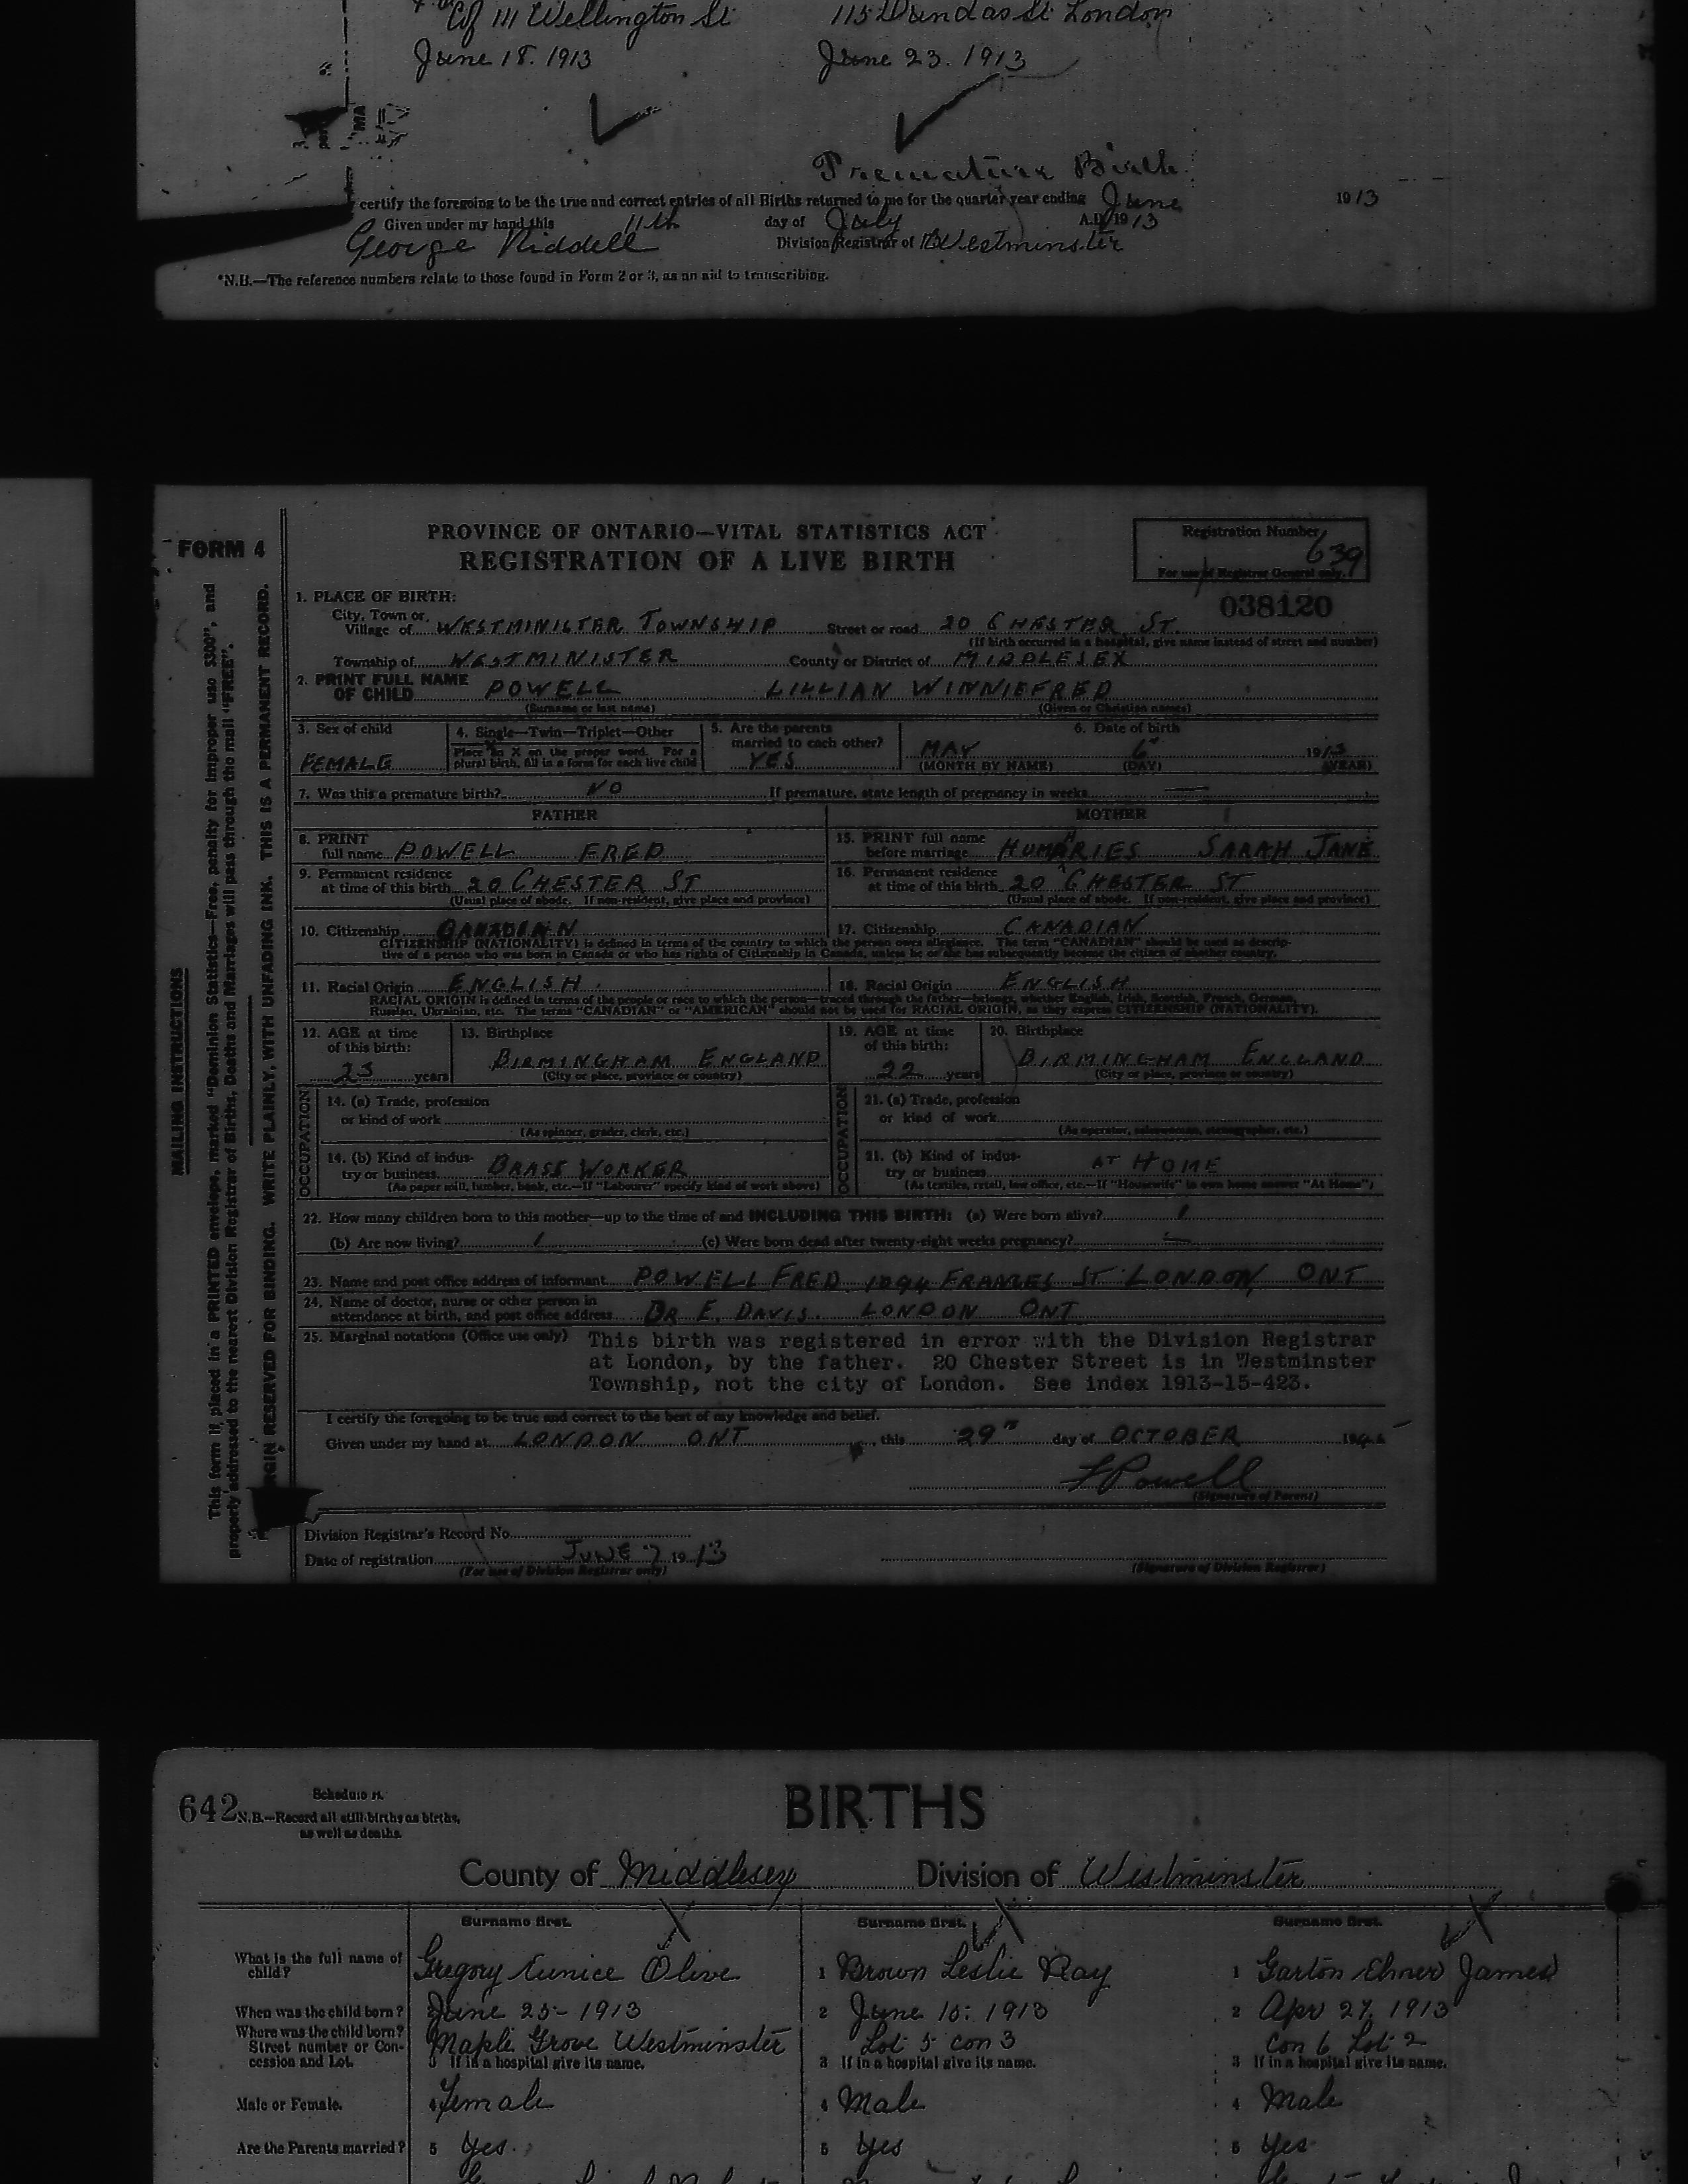 of 111 Wellington St 115 Dundas St London
June 18. 1913 June 23. 1913
Premature Birth
certify the foregoing to be the true and correct entries of all Births returned to me for the quarter year ending June 1913
Given under my hand this 11th day of July A.D. 1913
George Riddell Division Registrar of Westminster
*N.B.—The reference numbers relate to those found in Form 2 or 3, as an aid to transcribing.
FORM 4
MAILING INSTRUCTIONS
This form if, placed in a PRINTED envelope, marked "Dominion Statistics—Free, penalty for improper use $300", and
properly addressed to the nearest Division Registrar of Births, Deaths and Marriages will pass through the mail "FREE".
RGIN RESERVED FOR BINDING. WRITE PLAINLY, WITH UNFADING INK. THIS IS A PERMANENT RECORD.
PROVINCE OF ONTARIO—VITAL STATISTICS ACT
REGISTRATION OF A LIVE BIRTH
Registration Number
639
For use of Registrar General only.
038120
1. PLACE OF BIRTH:
City, Town or
Village of WESTMINISTER TOWNSHIP Street or road 20 CHESTER ST.
(If birth occurred in a hospital, give name instead of street and number)
Township of WESTMINISTER County or District of MIDDLESEX
2. PRINT FULL NAME
OF CHILD POWELL LILLIAN WINNIEFRED
(Surname or last name) (Given or Christian names)
3. Sex of child 4. Single—Twin—Triplet—Other 5. Are the parents 6. Date of birth
married to each other?
Place an X on the proper word. For a
plural birth, fill in a form for each live child
FEMALE YES MAY 6" 1913
(MONTH BY NAME) (DAY) (YEAR)
7. Was this a premature birth? NO If premature, state length of pregnancy in weeks —
FATHER MOTHER
8. PRINT 15. PRINT full name
full name POWELL FRED before marriage HUMPHRIES SARAH JANE
9. Permanent residence 16. Permanent residence
at time of this birth 20 CHESTER ST at time of this birth 20 CHESTER ST
(Usual place of abode. If non-resident, give place and province) (Usual place of abode. If non-resident, give place and province)
10. Citizenship CANADIAN 17. Citizenship CANADIAN
CITIZENSHIP (NATIONALITY) is defined in terms of the country to which the person owes allegiance. The term "CANADIAN" should be used as descrip-
tive of a person who was born in Canada or who has rights of Citizenship in Canada, unless he or she has subsequently become the citizen of another country.
11. Racial Origin ENGLISH 18. Racial Origin ENGLISH
RACIAL ORIGIN is defined in terms of the people or race to which the person—traced through the father—belongs, whether English, Irish, Scottish, French, German,
Russian, Ukrainian, etc. The terms "CANADIAN" or "AMERICAN" should not be used for RACIAL ORIGIN, as they express CITIZENSHIP (NATIONALITY).
12. AGE at time 13. Birthplace 19. AGE at time 20. Birthplace
of this birth: of this birth:
23 years BIRMINGHAM ENGLAND 22 years BIRMINGHAM ENGLAND
(City or place, province or country) (City or place, province or country)
OCCUPATION OCCUPATION
14. (a) Trade, profession 21. (a) Trade, profession
or kind of work or kind of work
(As spinner, grader, clerk, etc.) (As operator, saleswoman, stenographer, etc.)
14. (b) Kind of indus- 21. (b) Kind of indus-
try or business BRASS WORKER try or business AT HOME
(As paper mill, lumber, bank, etc.—If "Labourer" specify kind of work above) (As textiles, retail, law office, etc.—If "Housewife" in own home answer "At Home")
22. How many children born to this mother—up to the time of and INCLUDING THIS BIRTH: (a) Were born alive? 1
(b) Are now living? 1 (c) Were born dead after twenty-eight weeks pregnancy? —
23. Name and post office address of informant POWELL FRED 1094 FRANCES ST LONDON, ONT
24. Name of doctor, nurse or other person in
attendance at birth, and post office address DR E. DAVIS. LONDON ONT
25. Marginal notations (Office use only) This birth was registered in error with the Division Registrar
at London, by the father. 20 Chester Street is in Westminster
Township, not the city of London. See index 1913-15-423.
I certify the foregoing to be true and correct to the best of my knowledge and belief.
Given under my hand at LONDON ONT, this 29" day of OCTOBER
F Powell
(Signature of Parent)
Division Registrar's Record No.
Date of registration JUNE 7 1913
(For use of Division Registrar only) (Signature of Division Registrar)
642 Schedule A.
N.B.—Record all still-births as births,
as well as deaths.
BIRTHS
County of Middlesex Division of Westminster
Surname first. Surname first. Surname first.
What is the full name of
child? Gregory Eunice Olive 1 Brown Leslie Ray 1 Garton Elmer James
When was the child born? 2 June 25- 1913 2 June 10: 1913 2 Apr 27. 1913
Where was the child born?
Street number or Con-
cession and Lot. Maple Grove Westminster Lot 5 con 3 Con 6 Lot 2
3 If in a hospital give its name. 3 If in a hospital give its name. 3 If in a hospital give its name.
Male or Female. 4 Female 4 Male 4 Male
Are the Parents married? 5 Yes. 5 Yes 5 Yes